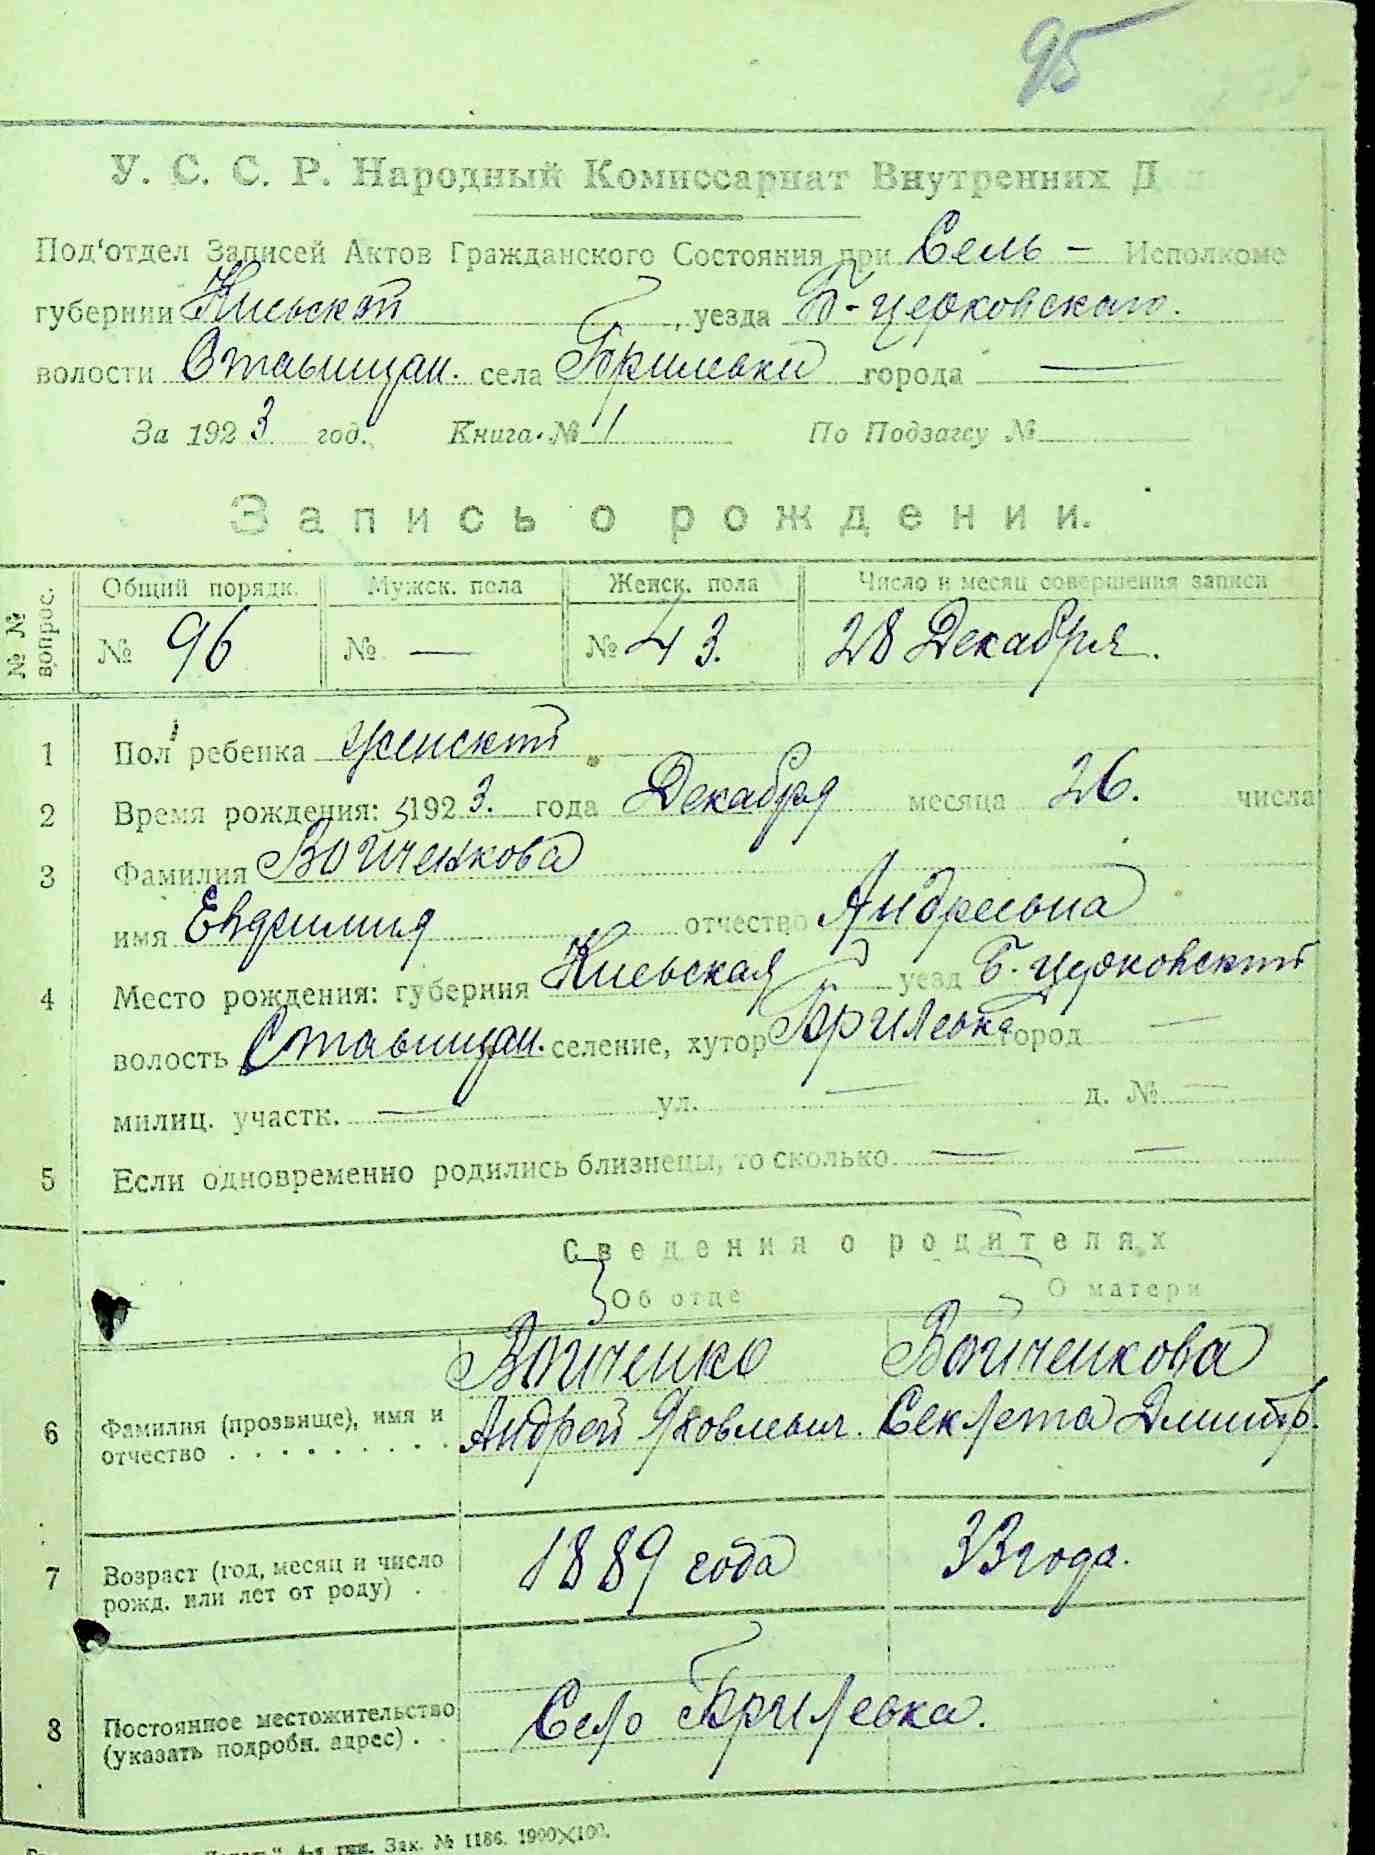 95
У. С. С. Р. Народный Комиссариат Внутренних
Под‘отдел Записей Актов Гражданского Состояния при Сель - Исполкоме
губернии Киевской, уезда Б-Церковского.
волости Ставищан. села Брилевки города —
За 1923 год. Книга № 1 По Подзагсу №
Запись о рождении.
№№ вопрос. Общий порядк. Мужск. пола Женск. пола Число и месяц совершения записи
№ 96 № — № 43. 28 Декабря.
1 Пол ребенка женский
2 Время рождения: 1923. года Декабря месяца 26. числа
3 Фамилия Войченкова
имя Евфимия отчество Андреевна
4 Место рождения: губерния Киевская уезд Б. Церковский
волость Ставищан. селение, хутор Брилевка город —
милиц. участк. — ул. — д. № —
5 Если одновременно родились близнецы, то сколько — —
Сведения о родителях
Об отце О матери
Войченко Войченкова
6 Фамилия (прозвище), имя и отчество Андрей Яковлевич. Секлета Дмитр.
7 Возраст (год, месяц и число рожд. или лет от роду) 1889 года 33 года.
8 Постоянное местожительство (указать подробн. адрес) Село Брилевка.
4-я тип. Зак. № 1186. 1900×100.